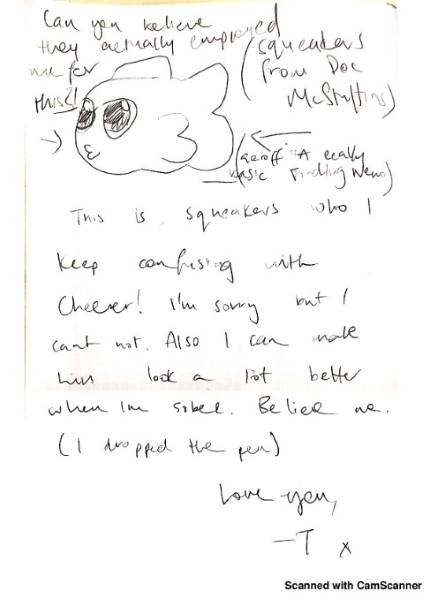 Can you believe
they actually employed
me for
this?!
(Squeakers
from Doc
McStuffins)
"A really
basic Finding Nemo)
This is squeakers who I
keep confusing with
Cheever! I'm sorry but I
cant not. Also I can make
him look a lot better
when Im sober. Believe me.
(I dropped the pen)
Love you,
-T x
Scanned with CamScanner